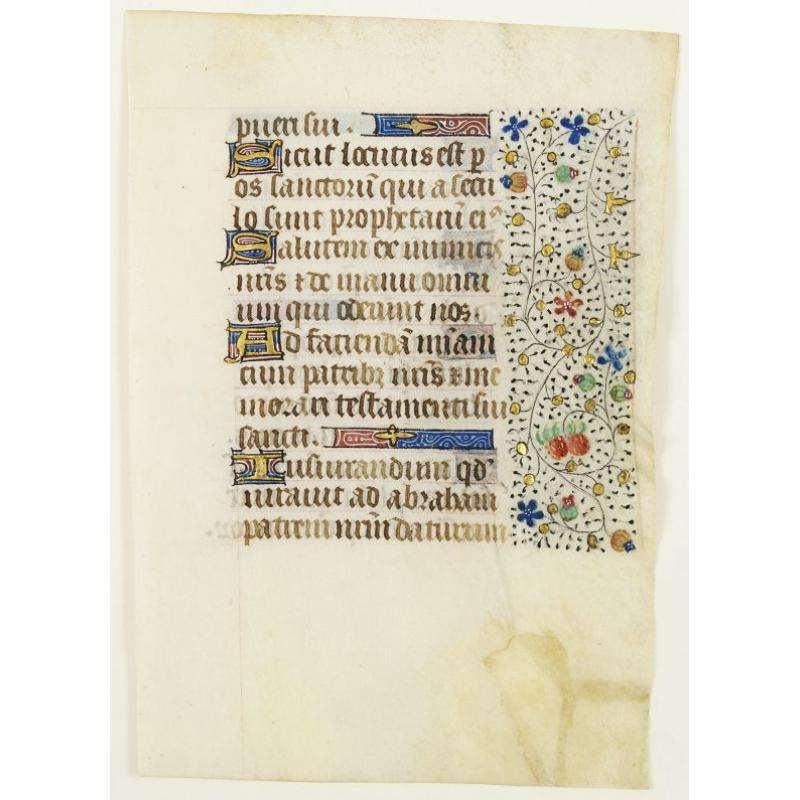 pueri sui .
Sicut locutus est p
os sanctorū qui a secu
lo sunt prophetarū eiꝰ
Salutem ex inimicis
nr̄is ⁊ de manu omni
um qui oderunt nos .
Ad faciendā mīam
cum patribꝫ nr̄is ⁊ me
morari testamenti sui
sancti .
Iusiurandum qd̓
iurauit ad abraham
patrem nr̄m daturum